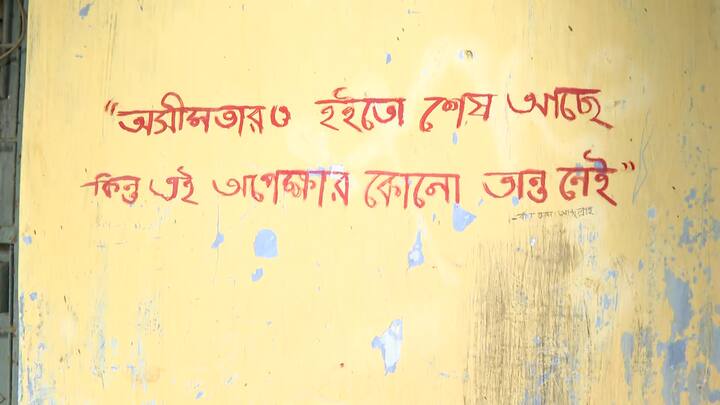 "অসীমতারও হইতো শেষ আছে
কিন্তু এই অপেক্ষার কোনো অন্ত নেই"